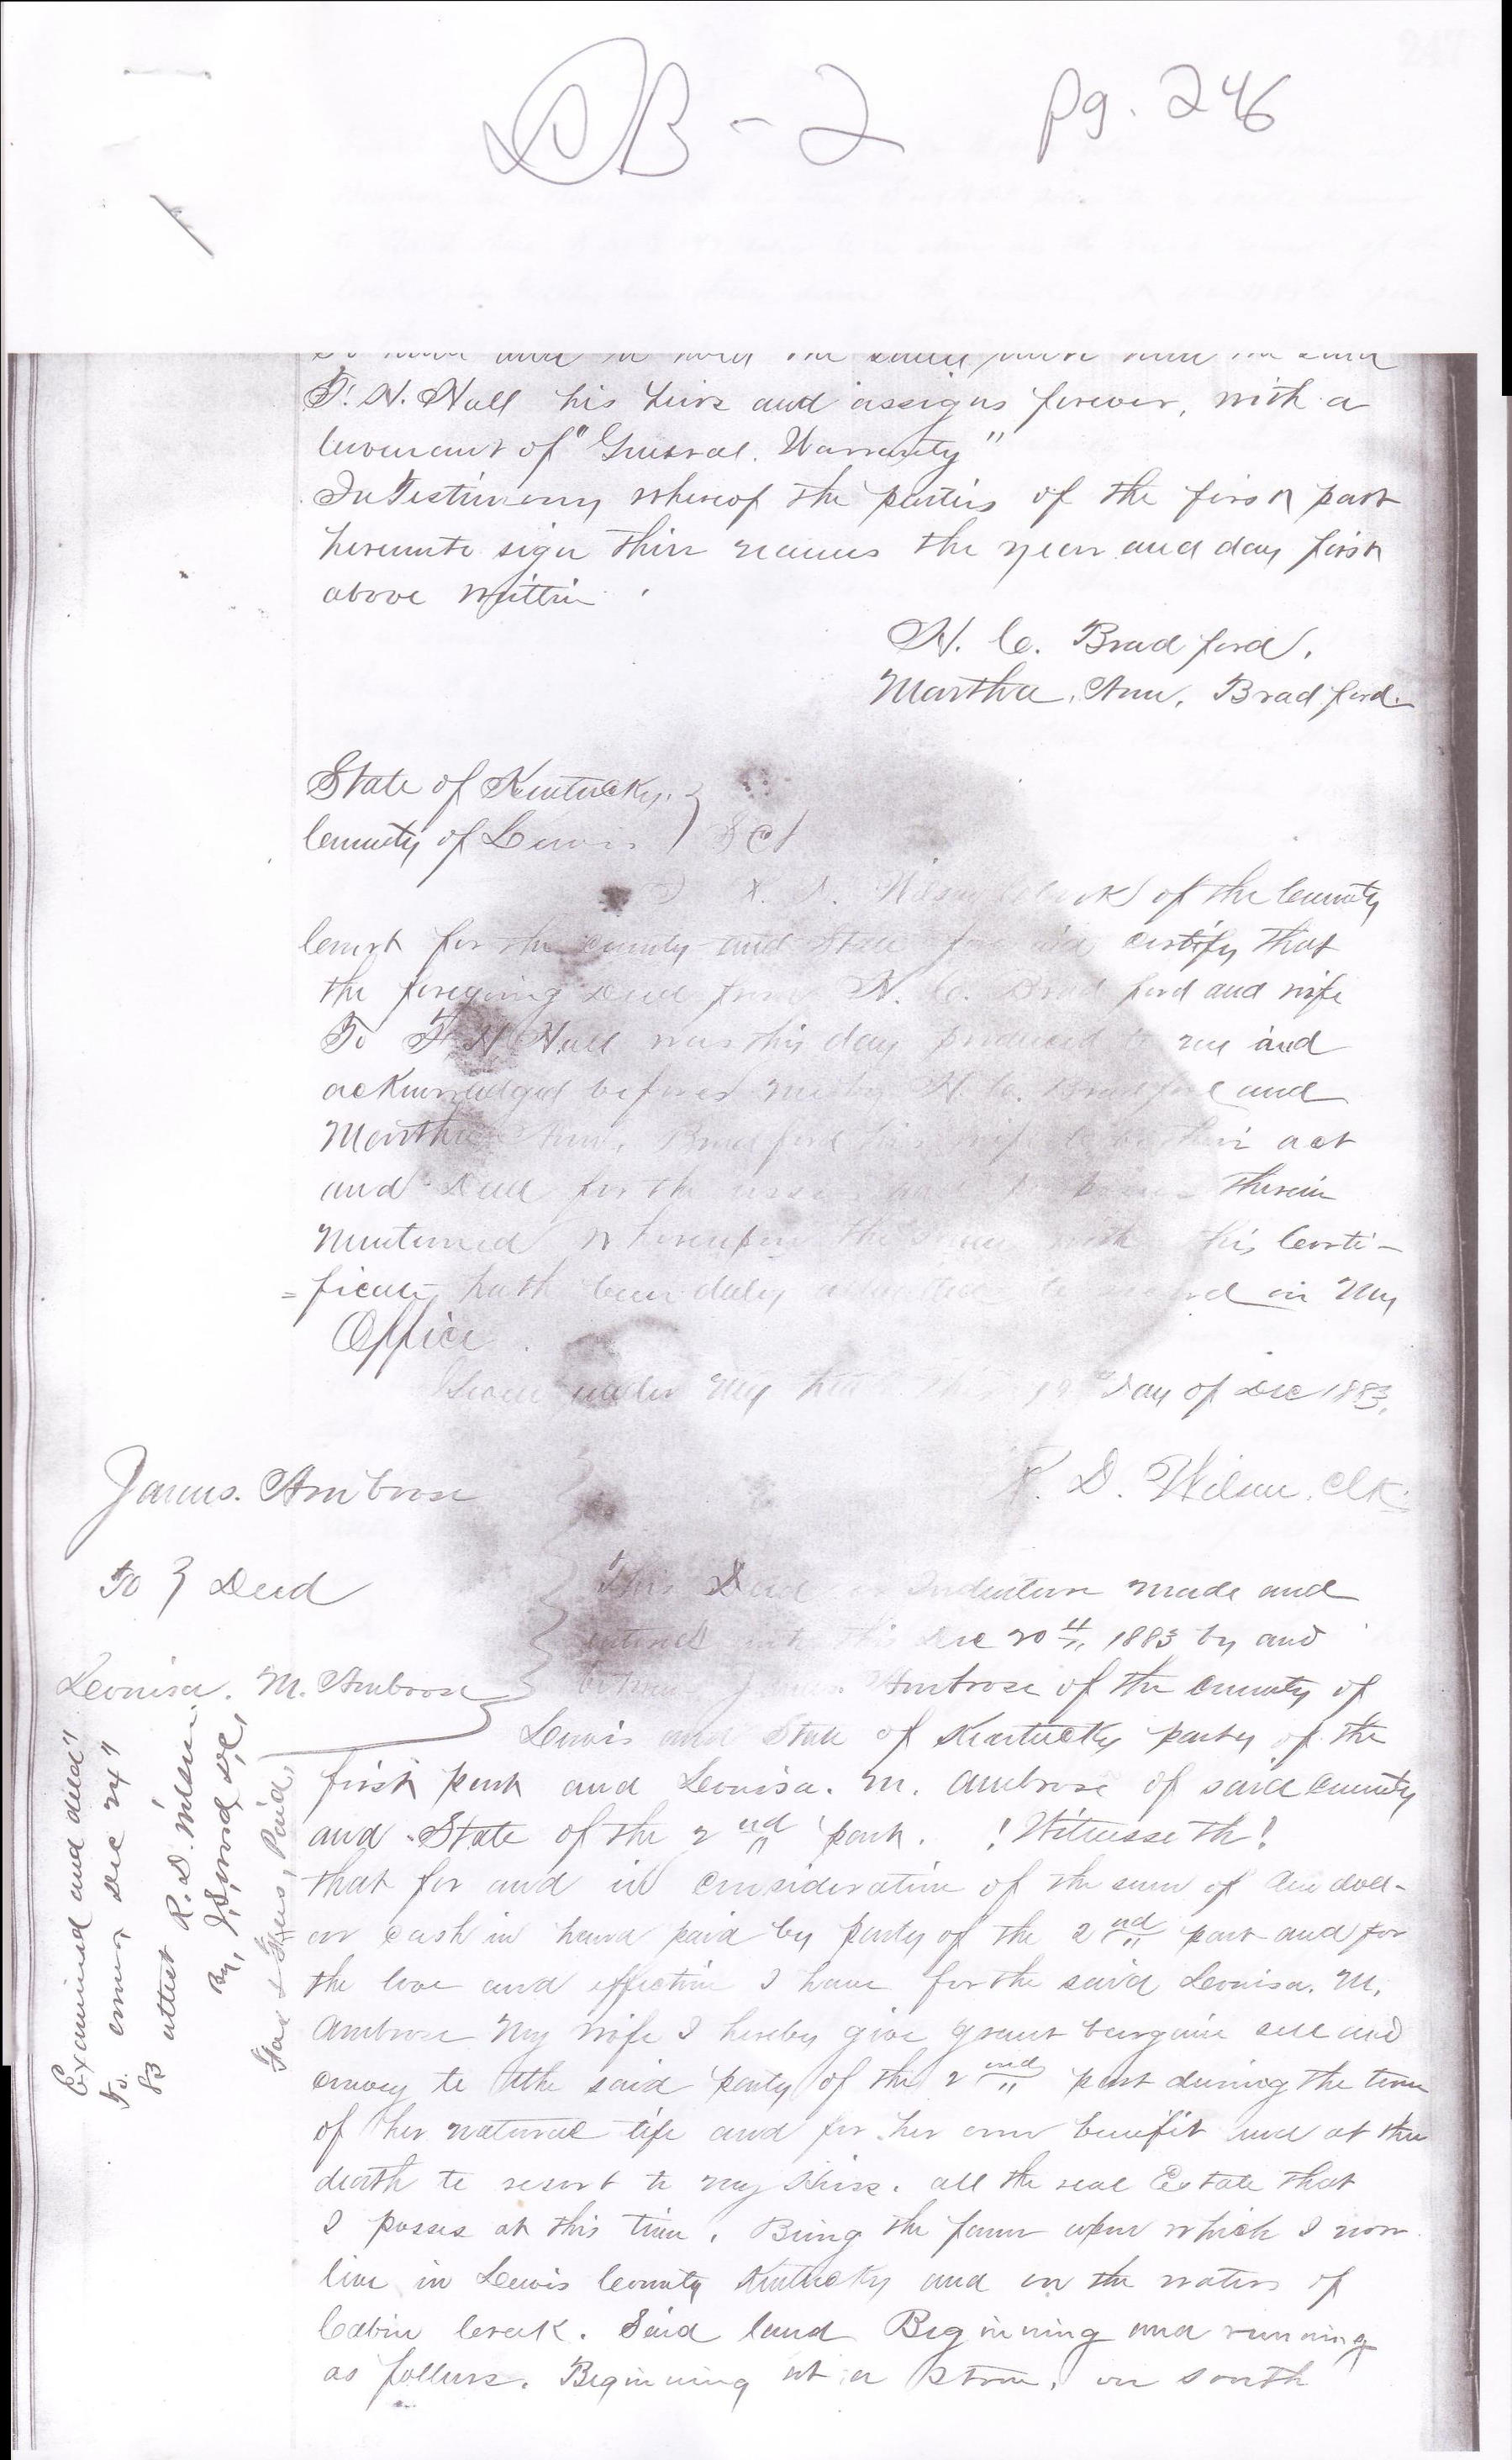 DB - 2 pg. 246
T. H. Hall his heirs and assigns forever, with a
Covenant of "General Warranty"
In Testimony whereof the parties of the first part
hereunto sign their names the year and day first
above written
H. C. Bradford.
Martha. Ann. Bradford.
State of Kentucky.
County of Lewis } Sct
R. D. Wilson Clerk of the County
Court for the county and State aforesaid certify that
the foregoing Deed from H. C. Bradford and wife
To T. H. Hall was this day produced to me and
acknowledged before me by H. C. Bradford and
Martha Ann. Bradford his wife to be their act
and Deed for the therein
mentioned whereupon the same with this Certi-
=ficate hath been duly admitted to record in my
Office.
Given under my hand this 19th Day of Dec 1883.
R. D. Wilson. Clk.
James. Ambrose
To } Deed
Leouisa. M. Ambrose
This Deed or Indenture made and
entered into this Dec 20th, 1883 by and
between James. Ambrose of the county of
Lewis and State of Kentucky party of the
first part and Leouisa. M. Ambrose of said County
and State of the 2nd part. ! Witnesseth !
that for and in consideration of the sum of one doll-
=ar cash in hand paid by party of the 2nd part and for
the love and effection I have for the said Leouisa. M.
Ambrose my wife I hereby give grant bargain sell and
convey to the said party of the 2nd part during the time
of her natural life and for her own benefit and at the
death to resort to my Heirs. all the real Estate that
I posses at this time. Being the farm upon which I now
live in Lewis County Kentucky and on the waters of
Cabin Creek. Said land Beginning and running
as follows. Beginning at a Stone. on south
Examined and deld"
To. Dec 24"
83 attest R. D. Wilson
By,
Tax & Fees, Paid,